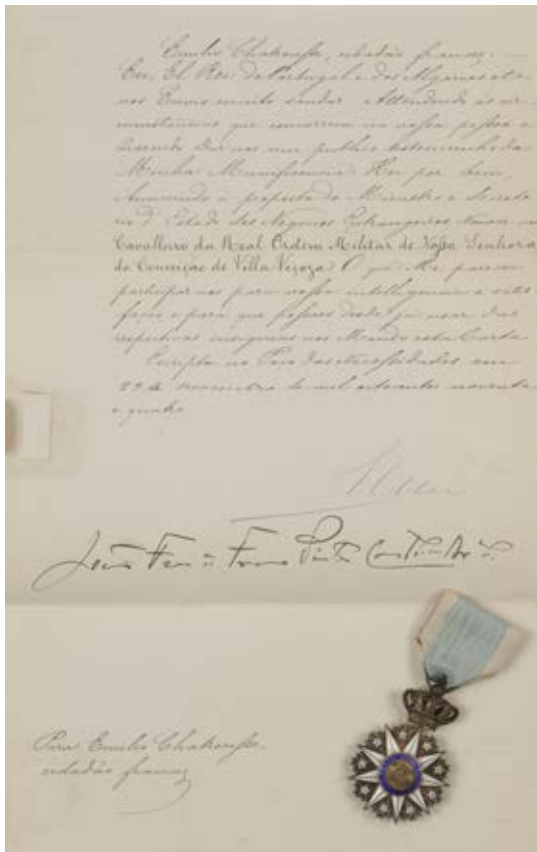 Emilio Chakouffe, cidadão francez.
Eu, El Rei de Portugal e dos Algarves etc
vos Envio muito saudar. Attendendo ás cir
cumstancias que concorrem na vossa pessoa e
Querendo dar vos um publico testemunho da
Minha Munificencia Hei por bem,
Annuindo á proposta do Ministro e Secreta
rio d'Estado dos Negocios Estrangeiros Nomear vos
Cavalleiro da Real Ordem Militar de Nossa Senhora
da Conceição de Villa Viçoza. O que Me pareceu
participar vos para vossa intelligencia e satis
fação e para que possaes desde já usar das
respectivas insignias vos Mando esta Carta
Escripta no Paço das Necessidades em
29 de novembro de mil oitocentos noventa
e quatro
El Rei
Para Emilio Chakouffe,
cidadão francez